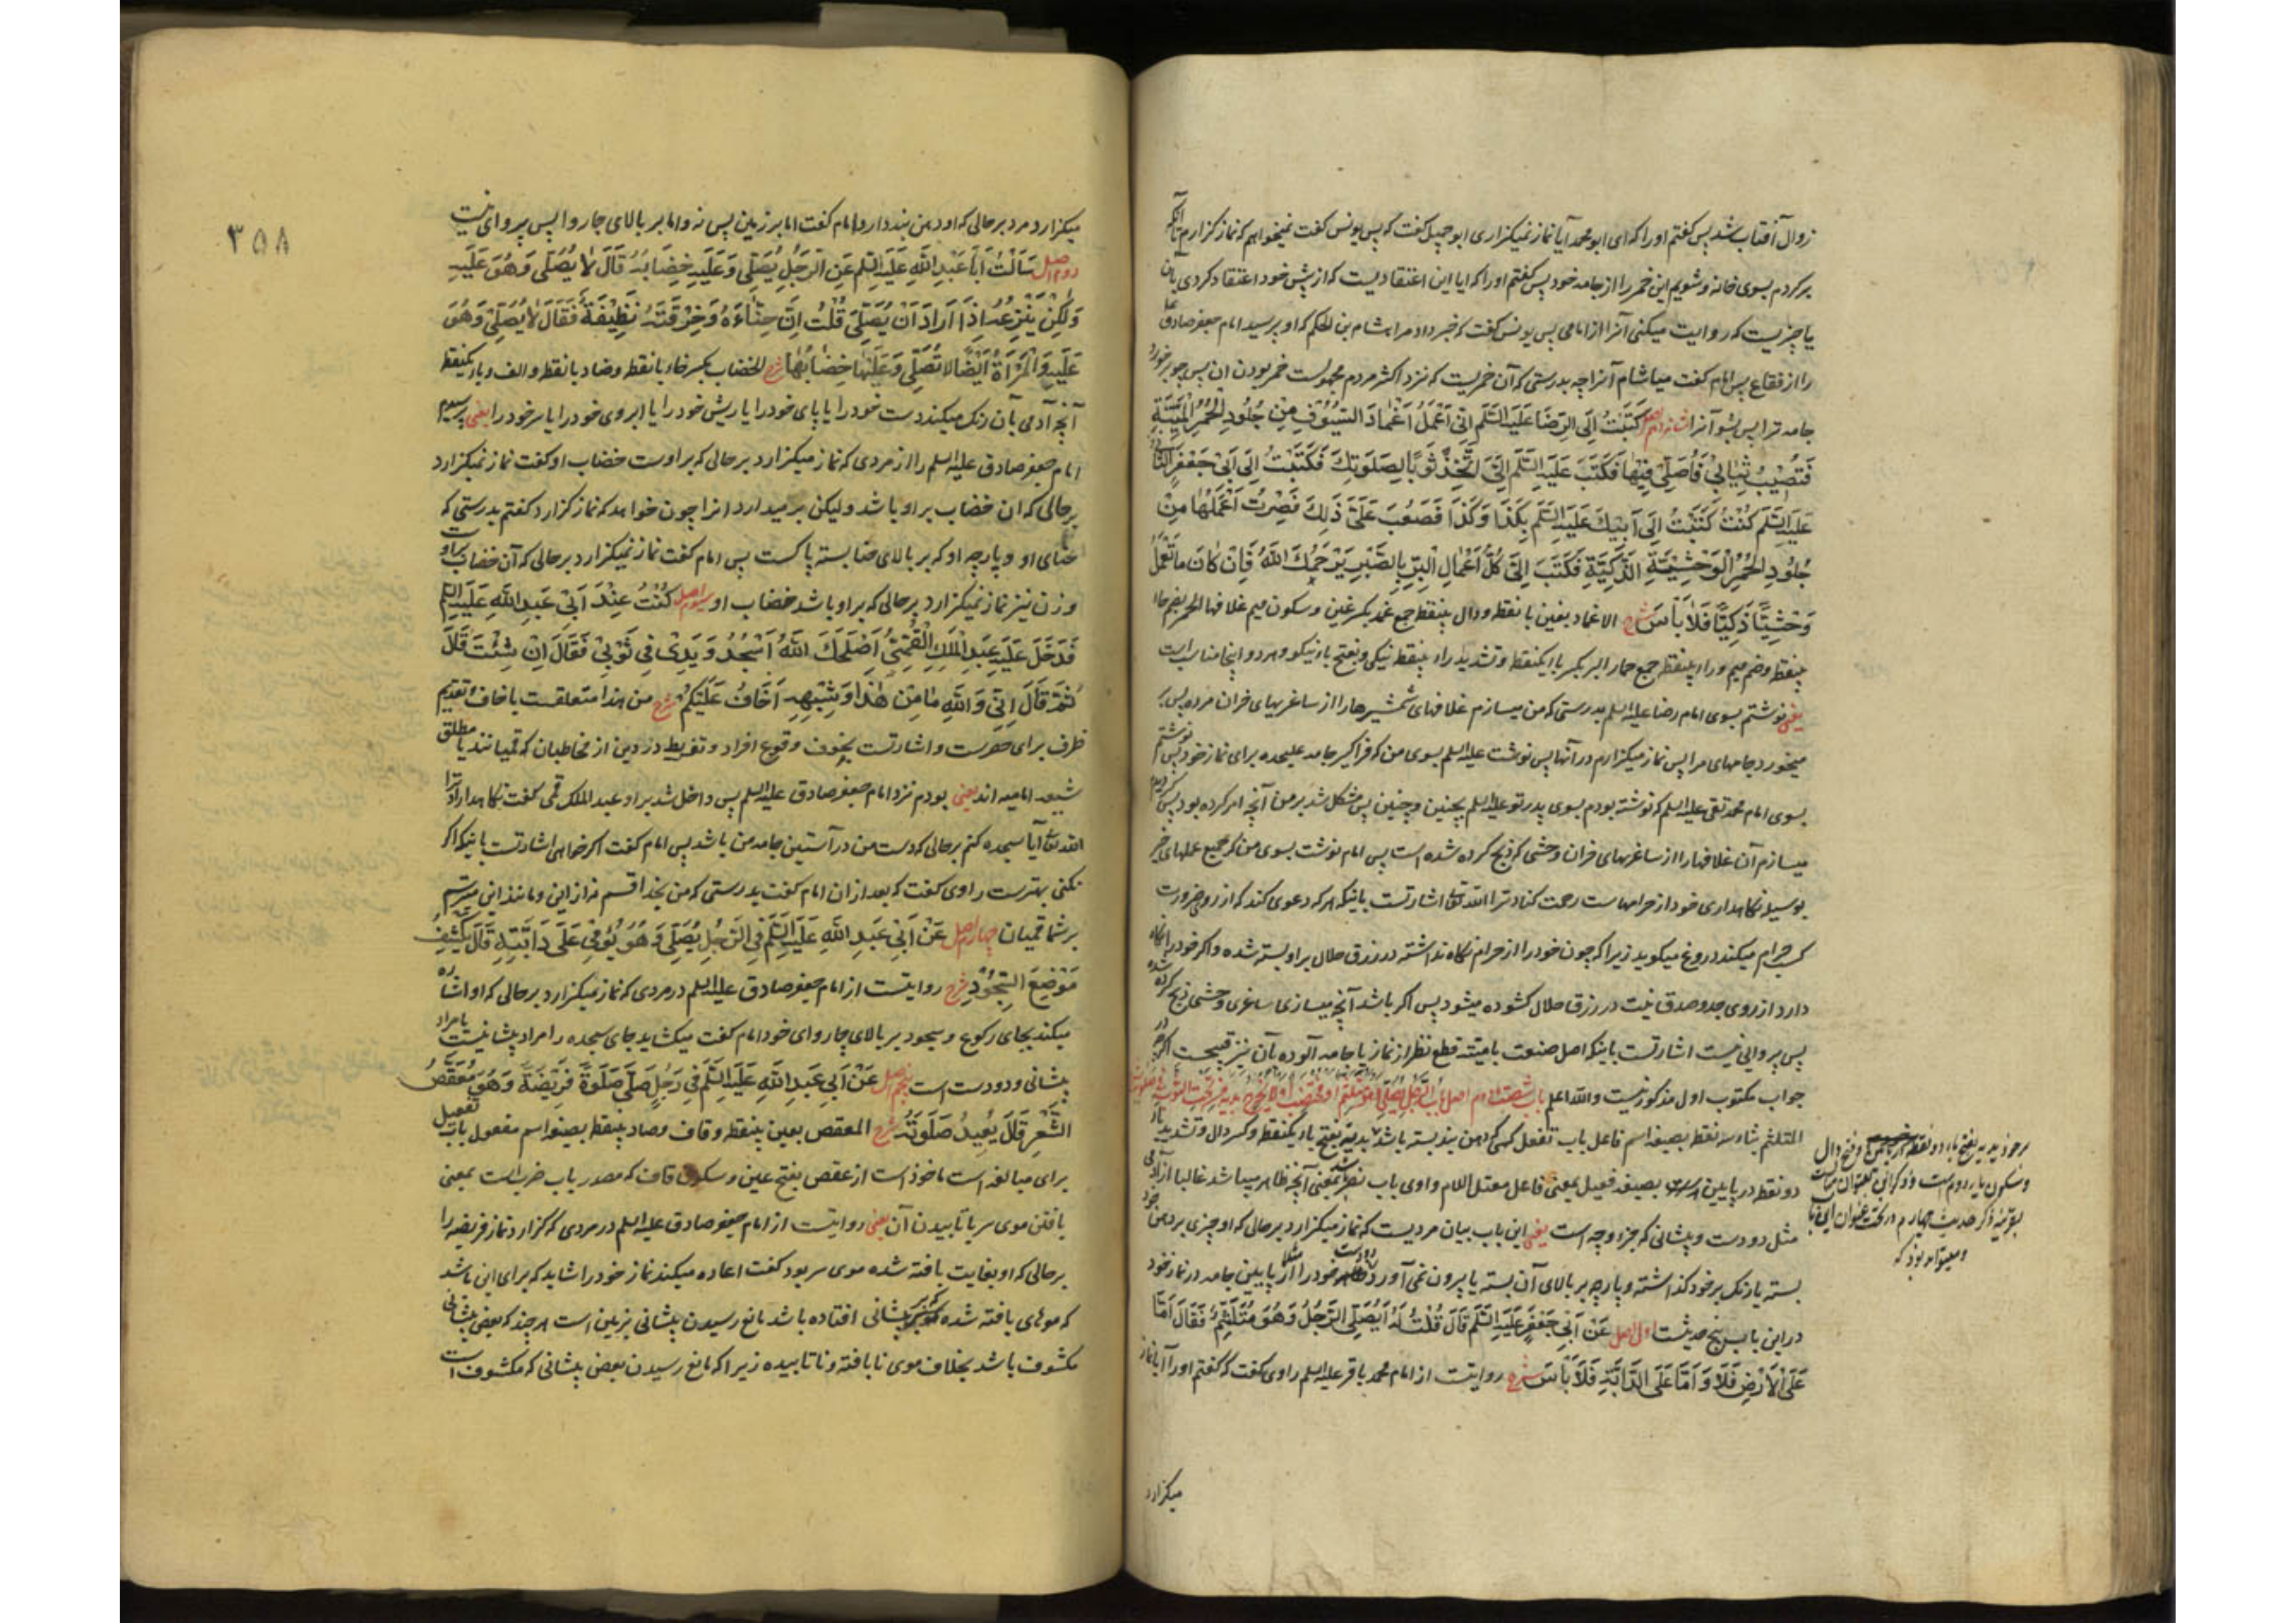 زوال آفتاب شد پس گفتم او را که ای ابو محمد آیا نماز نمیگزاری ابو جمیل گفت که پس یونس گفت نمیخواهم که نماز گزارم تا آنکه
برگردم بسوی خانه و شویم این خمر را از جامه خود پس گفتم او را که ایا این اعتقادیست که از پیش خود اعتقاد کردی بان
یا چیزیست که روایت میکنی آنرا از امامی پس یونس گفت که خبر داد مرا هشام بن الحکم که او پرسید امام جعفر صادق ع
را از فقاع پس امام گفت میاشام آنرا چه بدرستی که آن خمریست که نزد اکثر مردم مجهولست خمر بودن ان پس چو بر خورد
جامه ترا پس بشو آنرا شانزدهم اصل کَتَبْتُ اِلَی الرِّضَا عَلَیْهِ السَّلَم اِنِّی اَعْمَلُ اَغْمَادَ السُّیُوْفِ مِنْ جُلُودِ الْحُمُرِ الْمَیْتَةِ
فَتُصِیْبُ ثِیٰابِیْ فَاُصَلِّیْ فِیْهٰا فَکَتَبَ عَلَیْهِ السَّلَم اِلَیَّ اتَّخِذْ ثَوْبًا لِصَلَوتِکَ فَکَتَبْتُ اِلٰی اَبِیْ جَعْفَرٍ الثَّانِیْ
عَلَیْهِ السَّلَم کُنْتُ کَتَبْتُ اِلٰی اَبِیْکَ عَلَیْهِ السَّلَم بِکَذَا وَ کَذَا فَصَعُبَ عَلَیَّ ذٰلِکَ فَصِرْتُ اَعْمَلُهٰا مِنْ
جُلُودِ الْحُمُرِ الْوَحْشِیَّةِ الذَّکِیَّةِ فَکَتَبَ اِلَیَّ کُلُّ اَعْمٰالِ الْبِرِّ بِالصَّبْرِ یَرْحَمُکَ اللّٰهُ فَاِنْ کٰانَ مٰا تَعْمَلُ
وَحْشِیًّا ذَکِیًّا فَلٰا بَأسَ شرح الاغماد بغین با نقطه و دال بینقطه جمع غمد بکسر غین و سکون میم غلافها الحمر بضم حاء
بینقطه و ضم میم و راء بینقطه جمع حمار البر بکسر باء یکنقطه و تشدید راء بینقطه نیکی و بفتح باء نیکو و هر دو اینجا مناسب است
یعنی نوشتم بسوی امام رضا علیه السلم بدرستی که من میسازم غلافهای شمشیرها را از ساغریهای خران مرده پس بر
میخورد جامهای مرا پس نماز میگزارم در آنها پس نوشت علیه السلم بسوی من که فرا گیر جامه علیحده برای نماز خود پس نوشتم
بسوی امام محمد تقی علیه السلم که نوشته بودم بسوی پدر تو علیه السلم بچنین و چنین پس مشکل شد بر من آنچه امر کرده بود پس
میسازم آن غلافها را از ساغریهای خران وحشی که ذبح کرده شده است پس امام نوشت بسوی من که جمیع عملهای خیر
بوسیله نگاهداری خود از حرامهاست رحمت کناد ترا الله تعالی اشارتست باینکه هر که دعوی کند که از روی ضرورت
کسب حرام میکند دروغ میگوید زیرا که چون خود را از حرام نگاه نداشته در رزق حلال بر او بسته شده و اگر خود را نگاه
دارد از روی جد و صدق نیت در رزق حلال گشوده میشود پس اگر باشد آنچه میسازی ساغری وحشی ذبح کرده شده
پس پروائی نیست اشارتست باینکه اصل صنعت با میته قطع نظر از نماز با جامه آلوده بآن نیز قبیحست اگر چه در
جواب مکتوب اول مذکور نیست والله اعلم باب شصت و دوم اصل باب الرجل یصلی و هو متلثم او مختضب
المتلثم بثاء سه نقطه بصیغه اسم فاعل باب تفعل کسی که دهن بند بسته باشد بدیه بفتح باء یکنقطه و کسر دال و تشدید یاء
دو نقطه در پایین بصیغه فعیل بمعنی فاعل معتل اللام واوی باب نصر بمعنی آنچه ظاهر میباشد غالبا از آدمی
مثل دو دست و پیشانی که جزء وجه است یعنی این باب بیان مردیست که نماز میگزارد بر حالی که او چیزی بر دهن خود
بسته یا رنک بر خود گذاشته و پارچه بر بالای آن بسته یا بیرون نمی آورد دو دست خود را مثلا از پایین جامه در نماز خود
در این باب پنج حدیث است اول اصل عَنْ اَبِیْ جَعْفَرٍ عَلَیْهِ السَّلَم قٰالَ قُلْتُ لَهُ اَیُصَلِّی الرَّجُلُ وَ هُوَ مُتَلَثِّمٌ فَقٰالَ اَمّٰا
عَلَی الْاَرْضِ فَلٰا وَ اَمّٰا عَلَی الدَّابَّةِ فَلٰا بَأسَ شرح روایتست از امام محمد باقر علیه السلم راوی گفت که گفتم او را آیا نماز
میگزارد
و سکون یاء دوم است
بقرینه ذکر حدیث چهارم در تحت عنوان این باب
و میتواند بود که
۳۵۸
میگزارد مرد بر حالی که او دهن بند دارد امام گفت اما بر زمین پس نه و اما بر بالای چاروا پس پروای نیست
دوم اصل سَألْتُ اَبٰا عَبْدِ اللّٰهِ عَلَیْهِ السَّلَم عَنِ الرَّجُلِ یُصَلِّیْ وَ عَلَیْهِ خِضٰابُهُ قٰالَ لٰا یُصَلِّیْ وَ هُوَ عَلَیْهِ
وَ لٰکِنْ یَنْزِعُهُ اِذَا اَرَادَ اَنْ یُصَلِّیَ قُلْتُ اِنَّ حِنّٰاءَهُ وَ خِرْقَتَهُ نَظِیْفَةٌ فَقٰالَ لٰا یُصَلِّیْ وَ هُوَ
عَلَیْهِ وَ الْمَرْاَةُ اَیْضًا لٰا تُصَلِّیْ وَ عَلَیْهٰا خِضٰابُهٰا شرح الخضاب بکسر خاء با نقطه و ضاد با نقطه و الف و باء یکنقطه
آنچه آدمی بآن رنک میکند دست خود را یا پای خود را یا ریش خود را یا ابروی خود را یا سر خود را یعنی پرسیدم
امام جعفر صادق علیه السلم را از مردی که نماز میگزارد بر حالی که بر اوست خضاب او گفت نماز نمیگزارد
بر حالی که ان خضاب بر او باشد و لیکن بر میدارد انرا چون خواهد که نماز گزارد گفتم بدرستی که
حنای او و پارچه او که بر بالای حنا بسته پاکست پس امام گفت نماز نمیگزارد بر حالی که آن خضاب بر اوست
و زن نیز نماز نمیگزارد بر حالی که بر او باشد خضاب او سیوم اصل کُنْتُ عِنْدَ اَبِیْ عَبْدِ اللّٰهِ عَلَیْهِ السَّلَم
فَدَخَلَ عَلَیْهِ عَبْدُ الْمَلِکِ الْقُمِّیُّ اَصْلَحَکَ اللّٰهُ اَسْجُدُ وَ یَدِیْ فِیْ ثَوْبِیْ فَقٰالَ اِنْ شِئْتَ قٰالَ
ثُمَّ قٰالَ اِنِّیْ وَ اللّٰهِ مٰا مِنْ هٰذَا وَ شِبْهِهِ اَخٰافُ عَلَیْکُمْ شرح من هذا متعلقست باخاف و تقدیم
ظرف برای حصرست و اشارتست بخوف وقوع افراط و تفریط در دین از مخاطبان که قمیانند یا مطلق
شیعه امامیه اند یعنی بودم نزد امام جعفر صادق علیه السلم پس داخل شد بر او عبد الملک قمی گفت نگاهدارد ترا
الله تعالی آیا سجده کنم بر حالی که دست من در آستین جامه من باشد پس امام گفت اگر خواهی اشارتست باینکه اگر
نکنی بهترست راوی گفت که بعد از ان امام گفت بدرستی که من بخدا قسم نه از این و مانند این میترسم
بر شما قمیان چهارم اصل عَنْ اَبِیْ عَبْدِ اللّٰهِ عَلَیْهِ السَّلَم فِی الرَّجُلِ یُصَلِّیْ وَ هُوَ یُوْمِیْ عَلٰی دَابَّتِهِ قٰالَ یَکْشِفُ
مَوْضِعَ السُّجُوْدِ شرح روایتست از امام جعفر صادق علیه السلم در مردی که نماز میگزارد بر حالی که او اشاره
میکند بجای رکوع و سجود بر بالای چاروای خود امام گفت میکشاید جای سجده را مراد پیشانیست یا مراد
پیشانی و دو دست است پنجم اصل عَنْ اَبِیْ عَبْدِ اللّٰهِ عَلَیْهِ السَّلَم فِیْ رَجُلٍ صَلّٰی صَلٰوةً فَرِیْضَةً وَ هُوَ مُعَقَّصُ
الشَّعْرِ قٰالَ یُعِیْدُ صَلَوتَهُ شرح المعقص بعین بینقطه و قاف و صاد بینقطه بصیغه اسم مفعول باب تفعیل
برای مبالغه است ماخوذ است از عقص بفتح عین و سکون قاف که مصدر باب ضرب است بمعنی
بافتن موی سر یا تابیدن آن یعنی روایتست از امام جعفر صادق علیه السلم در مردی که گزارد نماز فریضه را
بر حالی که او بغایت بافته شده موی سر بود گفت اعاده میکند نماز خود را شاید که برای این باشد
که موهای بافته شده که بر پیشانی افتاده باشد مانع رسیدن پیشانی بزمین است هر چند که بعض پیشانی
مکشوف باشد بخلاف موی نا بافته و نا تابیده زیرا که مانع رسیدن بعض پیشانی که مکشوف است